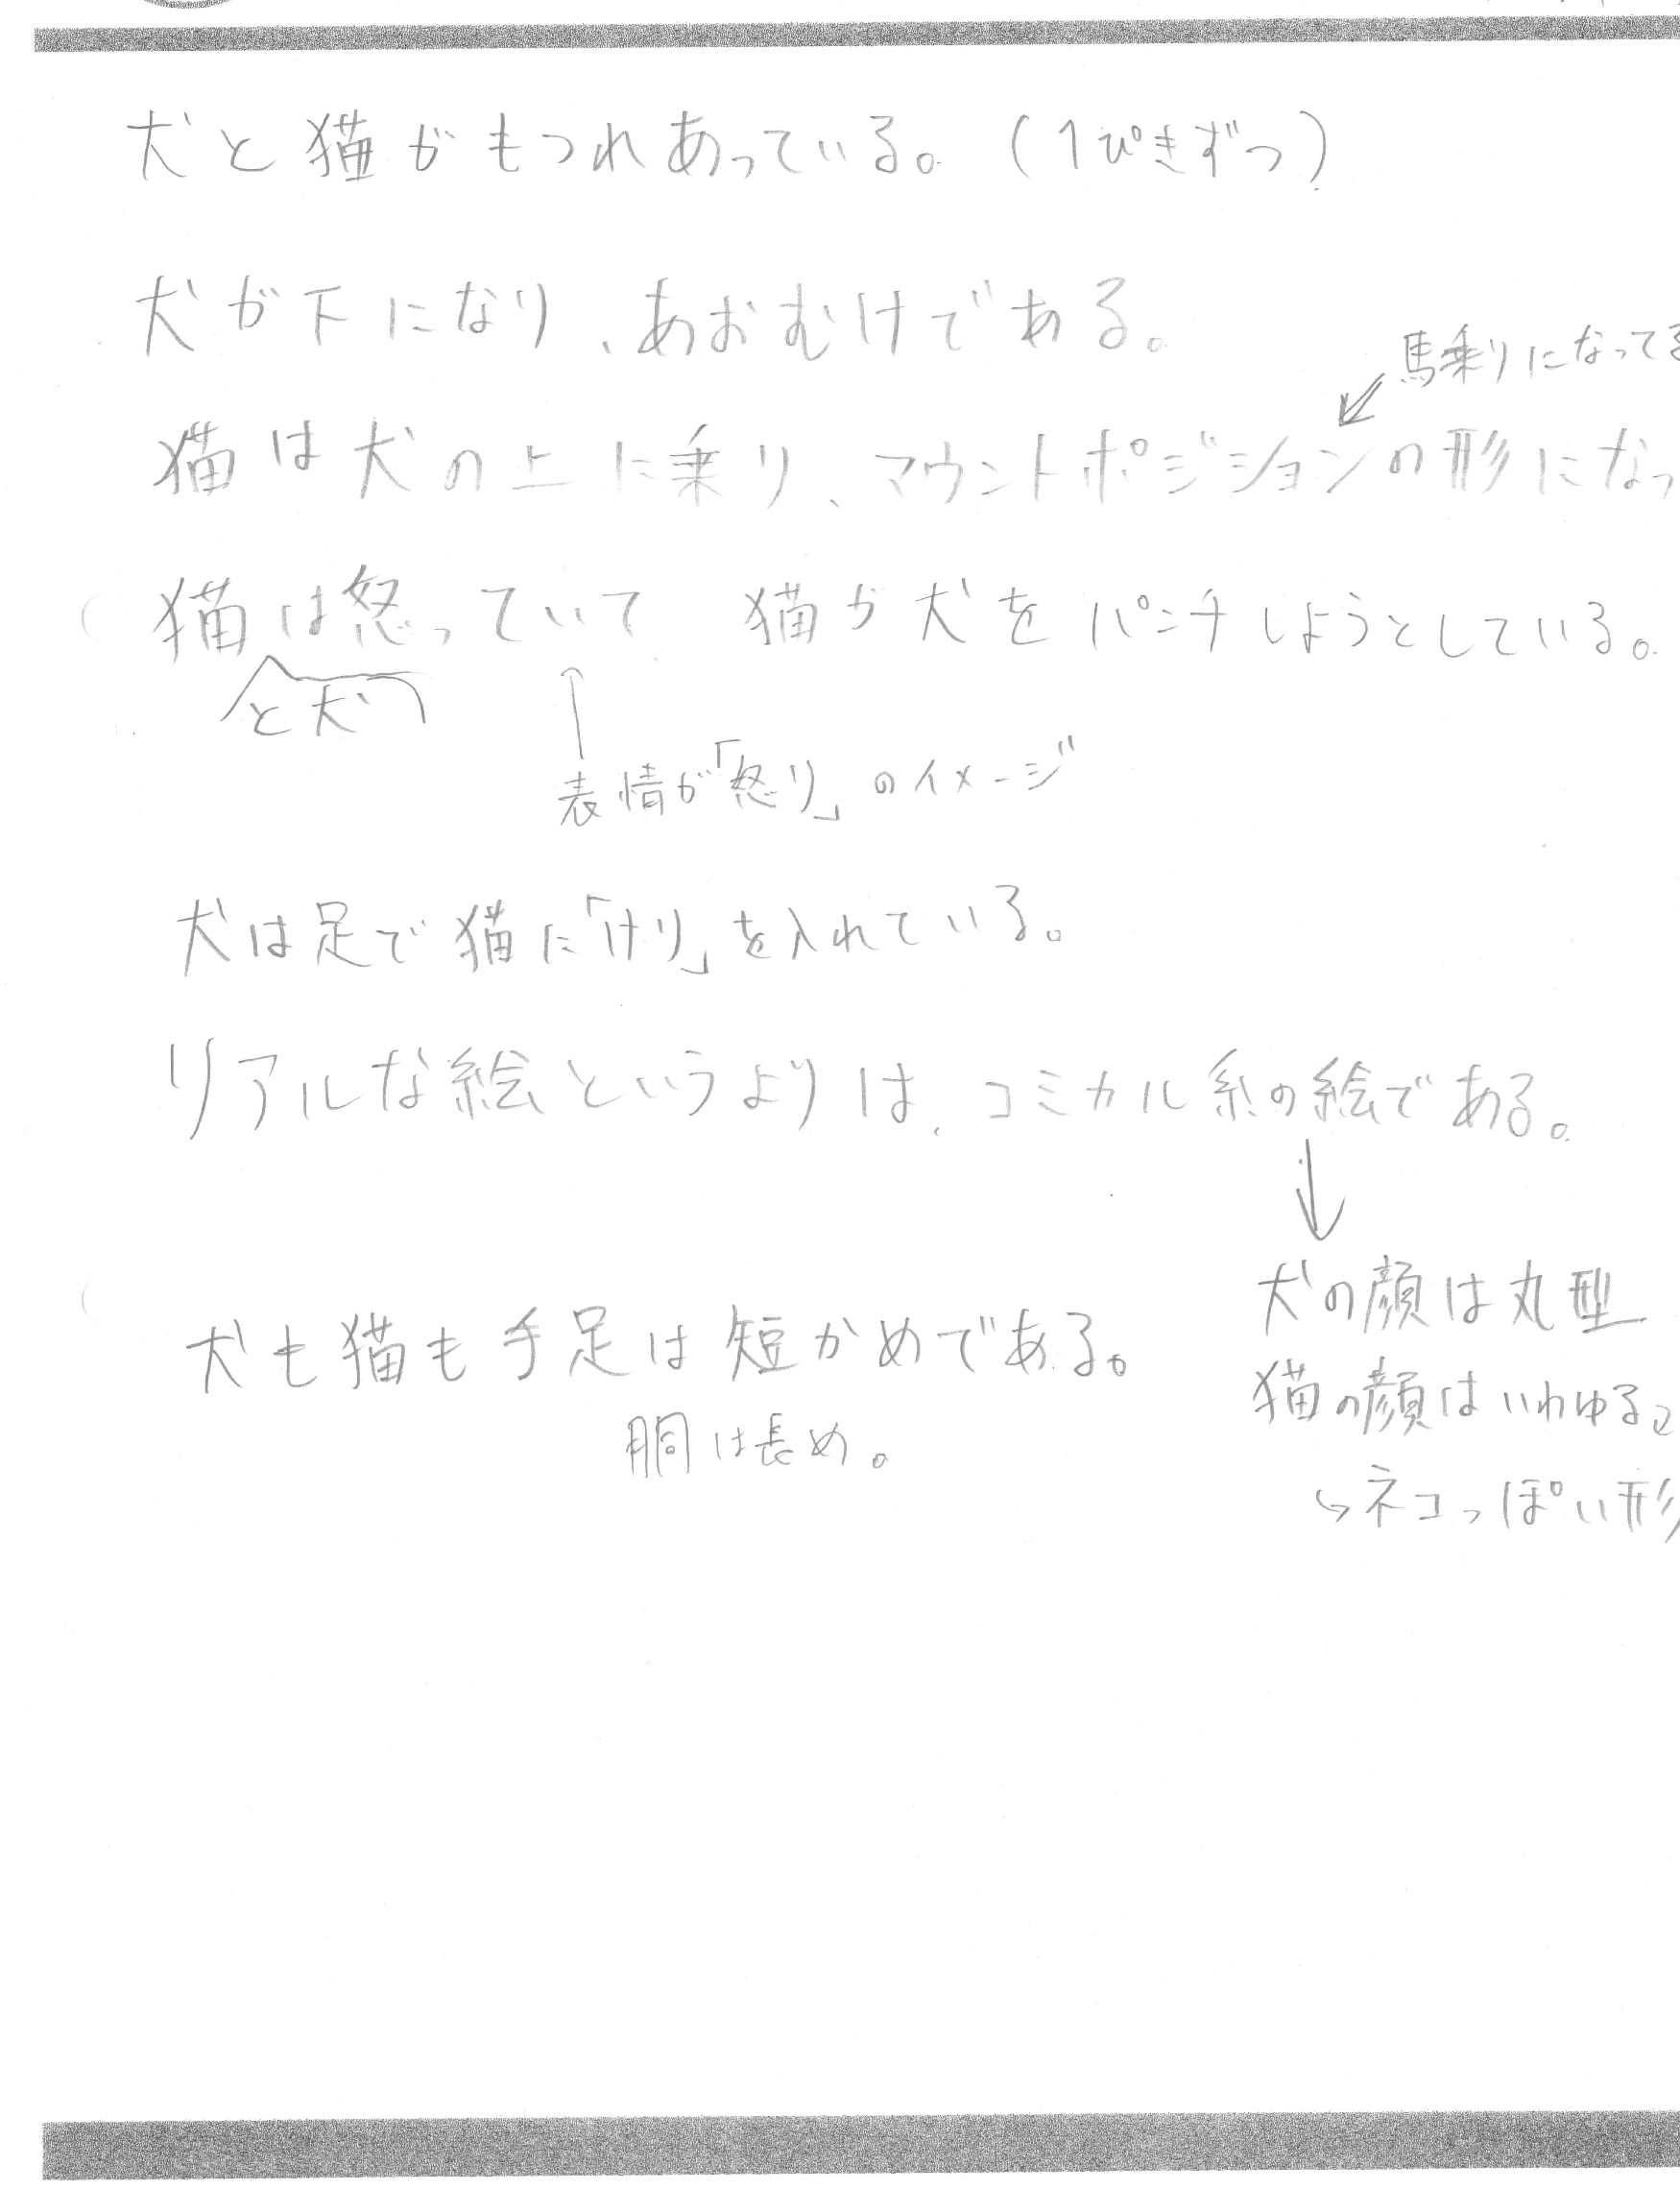 犬と猫がもつれあっている。(1ぴきずつ)
犬が下になり、あおむけである。
馬乗りになってる
猫は犬の上に乗り、マウントポジションの形になっ
猫は怒っていて 猫が犬をパンチしようとしている。
と犬
表情が「怒り」のイメージ
犬は足で猫に「けり」を入れている。
リアルな絵というよりは、コミカル系の絵である。
犬の顔は丸型
犬も猫も手足は短かめである。
猫の顔はいわゆる
胴は長め。
ネコっぽい形